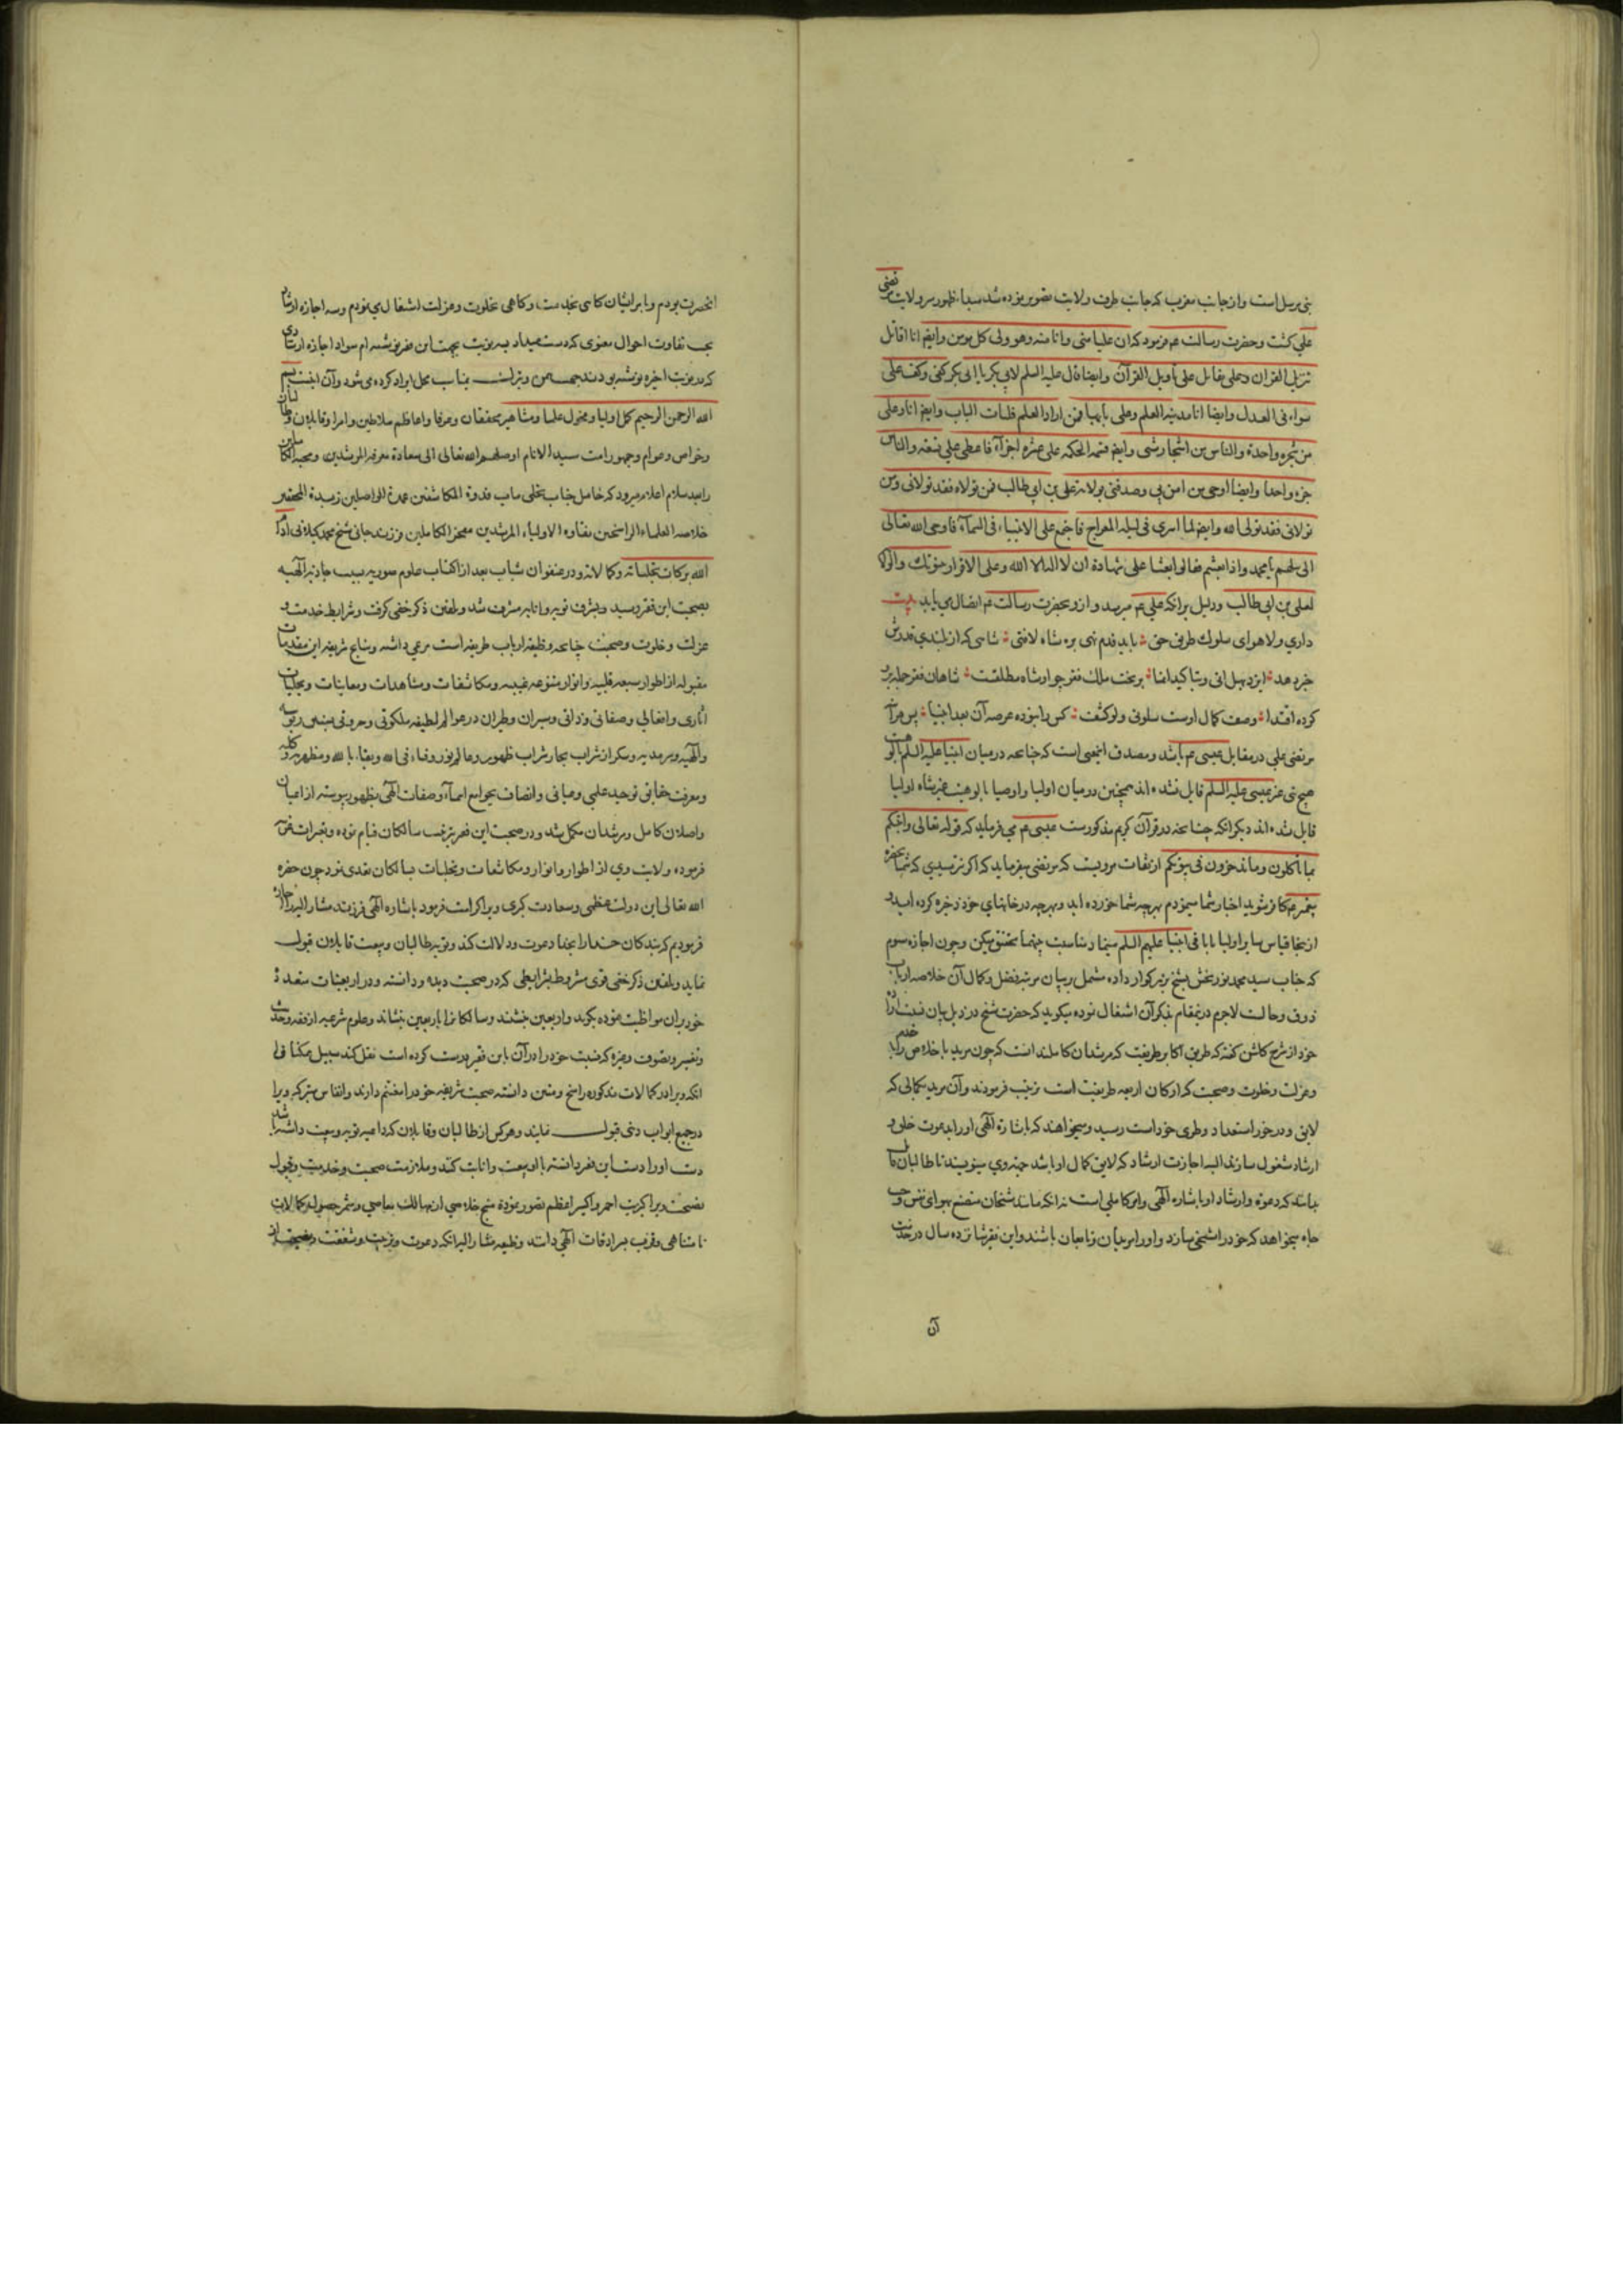 نبی مرسل است و از جانب مغرب که جانب طرف ولایت تصویر نموده شد مبدا ظهور سر ولایت مرتضی
علی گشت و حضرت رسالت عم فرمود که ان علیا منی و انا منه و هو ولی کل مومن و ایضا انا اقاتل
تنزیل القران و علی یقاتل علی تاویل القرآن و ایضا قال علیه السلم لابی بکر یا ابی بکر کفی و کف علی
سواء فی العدل و ایضا انا مدینه العلم و علی بابها فمن اراد العلم فلیات الباب و ایضا انا و علی
من شجره واحدة و الناس من اشجار شتی و ایضا قسمه الحکمه علی عشره اجزآء فاعطی علی تسعه و الناس
جزء واحدا و ایضا اوحی من امن بی و صدقنی بولایة علی بن ابی طالب فمن تولاه فقد تولانی و من
تولانی فقد تولی الله و ایضا لما اسری فی لیله المعراج فاجتمع علی الانبیاء فی السمآء فاوحی الله تعالی
الی سلهم یا محمد و اذا بعثتم فقالوا بعثنا علی شهادة ان لا اله الا الله و علی الاقرار بنبوتک و الولایة
لعلی بن ابی طالب و دلیل بر آنکه علی عم میرسد و از و بحضرت رسالت عم اتصال می یابد بیت
داری ولا هوای سلوک طریق حق باید قدم نهی بره شاه لافتی شاهی که از بلندی قدرش
خبر دهد ایزد بهل اتی و بتاکید انما بر تخت ملک فقر چو او شاه مطلقست شاهان فقر جمله برو
کرده اقتدا وصف کمال اوست سلونی و لو کشف کس را نبوده عرصه آن بعد انبیا پس مراد
مرتضی علی در مقابل عیسی عم باشد و مصدق این معنی است که چنانچه در میان انبیا علیه السلم بالوهیت
هیچ نبی غیر عیسی علیه السلم قایل نشده اند همچنین در میان اولیا و اوصیا بالوهیت غیر شاه اولیا
قایل نشده اند دیگر آنکه چنانچه در قرآن کریم مذکورست عیسی عم می فرماید که قوله تعالی و انبئکم
بما تاکلون و ما تدخرون فی بیوتکم از ثقات مرویست که مرتضی میفرماید که اگر نترسیدی که شما بحضره
پیغمبر عم کافر شوید اخبار شما مینمودم بهرچه شما خورده اید و بهرچه در خانهای خود ذخیره کرده اید و
از ینجا قیاس سایر اولیا با باقی انبیا علیهم السلم سیما و مناسبت بینهما تحقق میکن و چون اجازه سوم
که جناب سید محمد نوربخش بشیخ بزرگوار داده مشتمل بر بیان مرتبه فضل و کمال آن خلاصه ارباب
ذوق و حالست لاجرم درینمقام بذکر آن اشتغال نموده میگوید که حضرت شیخ در ذیل بیان نسبت اراده
خود از شرح گلشن گفته که طریق اکابر طریقت که مرشدان کاملند آنست که چون مرید با خلاص را بخدمت
و عزلت و خلوت و صحبت که ارکان اربعه طریقت است ترتیب فرمودند و آن مرید بکمالی که
لایق و در خور استعداد و فطری خود است رسید و میخواهند که باشارة الهی او را بدعوت خلق و
ارشاد مشغول سازند البته اجازت ارشاد که لایق کمال او باشد جهة وی مینویسند تا طالبان قابل
بدانند که دعوة و ارشاد او باشاره الهی و امر کاملی است نه آنکه مانند شیخان متصنع بهوای نفس و حب
جاه میخواهد که خود را شیخی سازد و او را مریدان و تابعان باشند و این فقیر شانزده سال در خدمت
آن
آنحضرت بودم و با بر ایشان گاهی بخدمت و گاهی بخلوت و عزلت اشتغال می نمودم و سه اجازه ارشاد
بحسب تفاوت احوال معنوی که دست میداد بسه نوبت بجهت این فقیر نوشته ام سواد اجازه ارشادی
که در نوبت اخیره نوشته بودند بناسب محل ایراد کرده می شود و آن اینست بسم
الله الرحمن الرحیم کمل اولیا و فحول علما و مشاهیر محققان و عرفا و اعاظم سلاطین و امرا و قابلان و طالبان
و خواص و عوام و جمهور امت سید الانام اوصلهم الله تعالی الی سعادة معرفة المرشدین و محبة الکاملین
را بعد سلام اعلام میرود که حامل جناب تجلی مآب قدوة المکاشفین عمدة الواصلین زبدة المحققین
خلاصه العلماء الراسخین نقاوه الاولیاء المرشدین مفخر الکاملین فرزند جانی شیخ محمد گیلانی ادام
الله برکات تجلیاته و کمالاته و در عنفوان شباب بعد از اکتساب علوم صوریه بسبب جاذبه الهیه
بصحبت این فقیر رسید و بشرف توبه و انابه مشرف شد و تلقین ذکر خفی گرفت و شرایط خدمت و
عزلت و خلوت و صحبت چنانچه وظیفه ارباب طریقه است مرعی داشته و نتایج شریفه این مقدمات
مقبوله از اطوار سبعه قلبیه و انوار متنوعه غیبیه و مکاشفات و مشاهدات و معاینات و تجلیات
آثاری و افعالی و صفاتی و ذاتی و سیران و طیران در عوالم لطیفه ملکوتی و جبروتی
و الهیه و سرمدیه و سکر از شراب بحار شراب ظهور و عالم نور و فناء فی الله و بقاء بالله و مظهریه کلیه و
و معرفت حقایق توحید علمی و عیانی و اتصاف بجوامع اسمآء و صفات الهی بظهور پیوسته از اعیان
واصلان کامل و مرشدان مکمل شد و در صحبت این فقیر بترتیب سالکان قیام نموده و تعبیرات
فرموده ولایت وی از اطوار و انوار و مکاشفات و تجلیات سالکان تعدی نمود چون حضره
الله تعالی این دولت عظمی و سعادت کبری ویرا کرامت فرمود باشاره الهی فرزند مشار الیه را اجازه
فرمودیم که بندگان خدا را بخدا دعوت و دلالت کند و توبه طالبان و بیعت قابلان قبول
نماید و تلقین ذکر خفی قوی مشروط بشرایطی که در صحبت دیده و دانسته و در اربعینات متعدده
خود بر آن مواظبت نموده بگوید و اربعین بنشیند و سالکانرا باربعین بنشاند و علوم شرعیه از فقه و حدیث
و تفسیر و تصوف و غیره که نسبت خود را در آن باین فقیر درست کرده است نقل کند سبیل
آنکه ویرا در کمالات مذکوره راسخ و متین دانسته صحبت شریفه خود را مغتنم دارند و انفاس متبرکه ویرا
در جمیع ابواب دینی قبول نمایند و هر کس از طالبان و قابلان که داعیه توبه و بیعت داشته باشد
دست او را دست این فقیر دانسته با او بیعت و انابت کند و ملازمت صحبت و خدمت و قبول
نصیحت ویرا کبریت احمر و اکسیر اعظم تصور نموده منتج خلاصی از مهالک معاصی و مثمر حصول کمالات
نامتناهی و قرب سرادقات الهی دانند وظیفه مشار الیه آنکه دعوت و تربیت و شفقت و نصیحت از